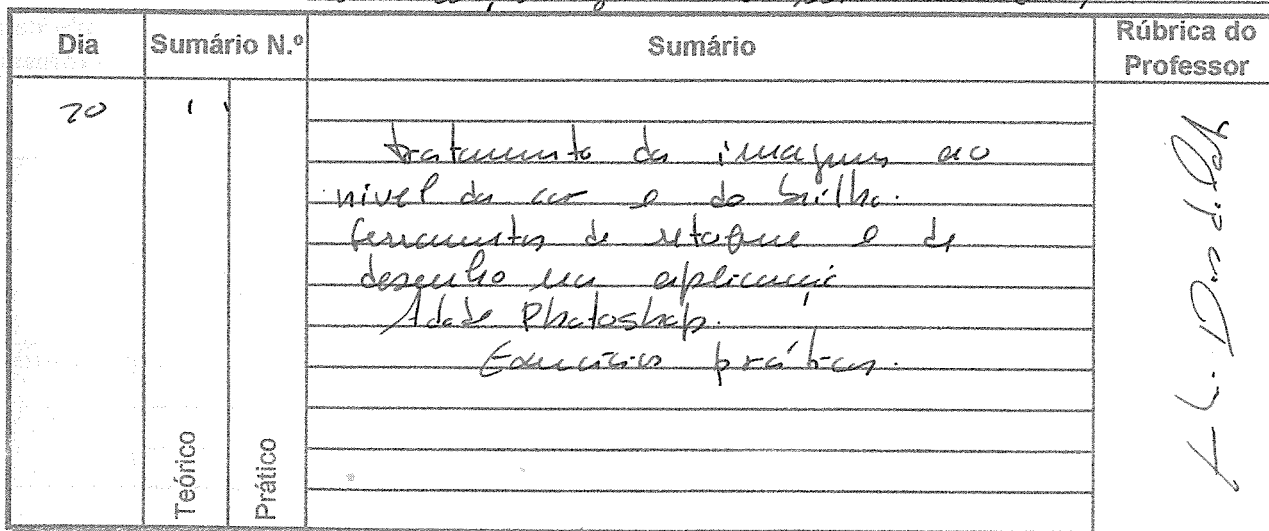 Dia Sumário N.º Sumário Rúbrica do Professor
20
tratamento da imagem ao
nivel da cor e do brilho.
ferramentas de retoque e de
desenho na aplicação
Adobe Photoshop.
Exercícios práticos.
Teórico Prático